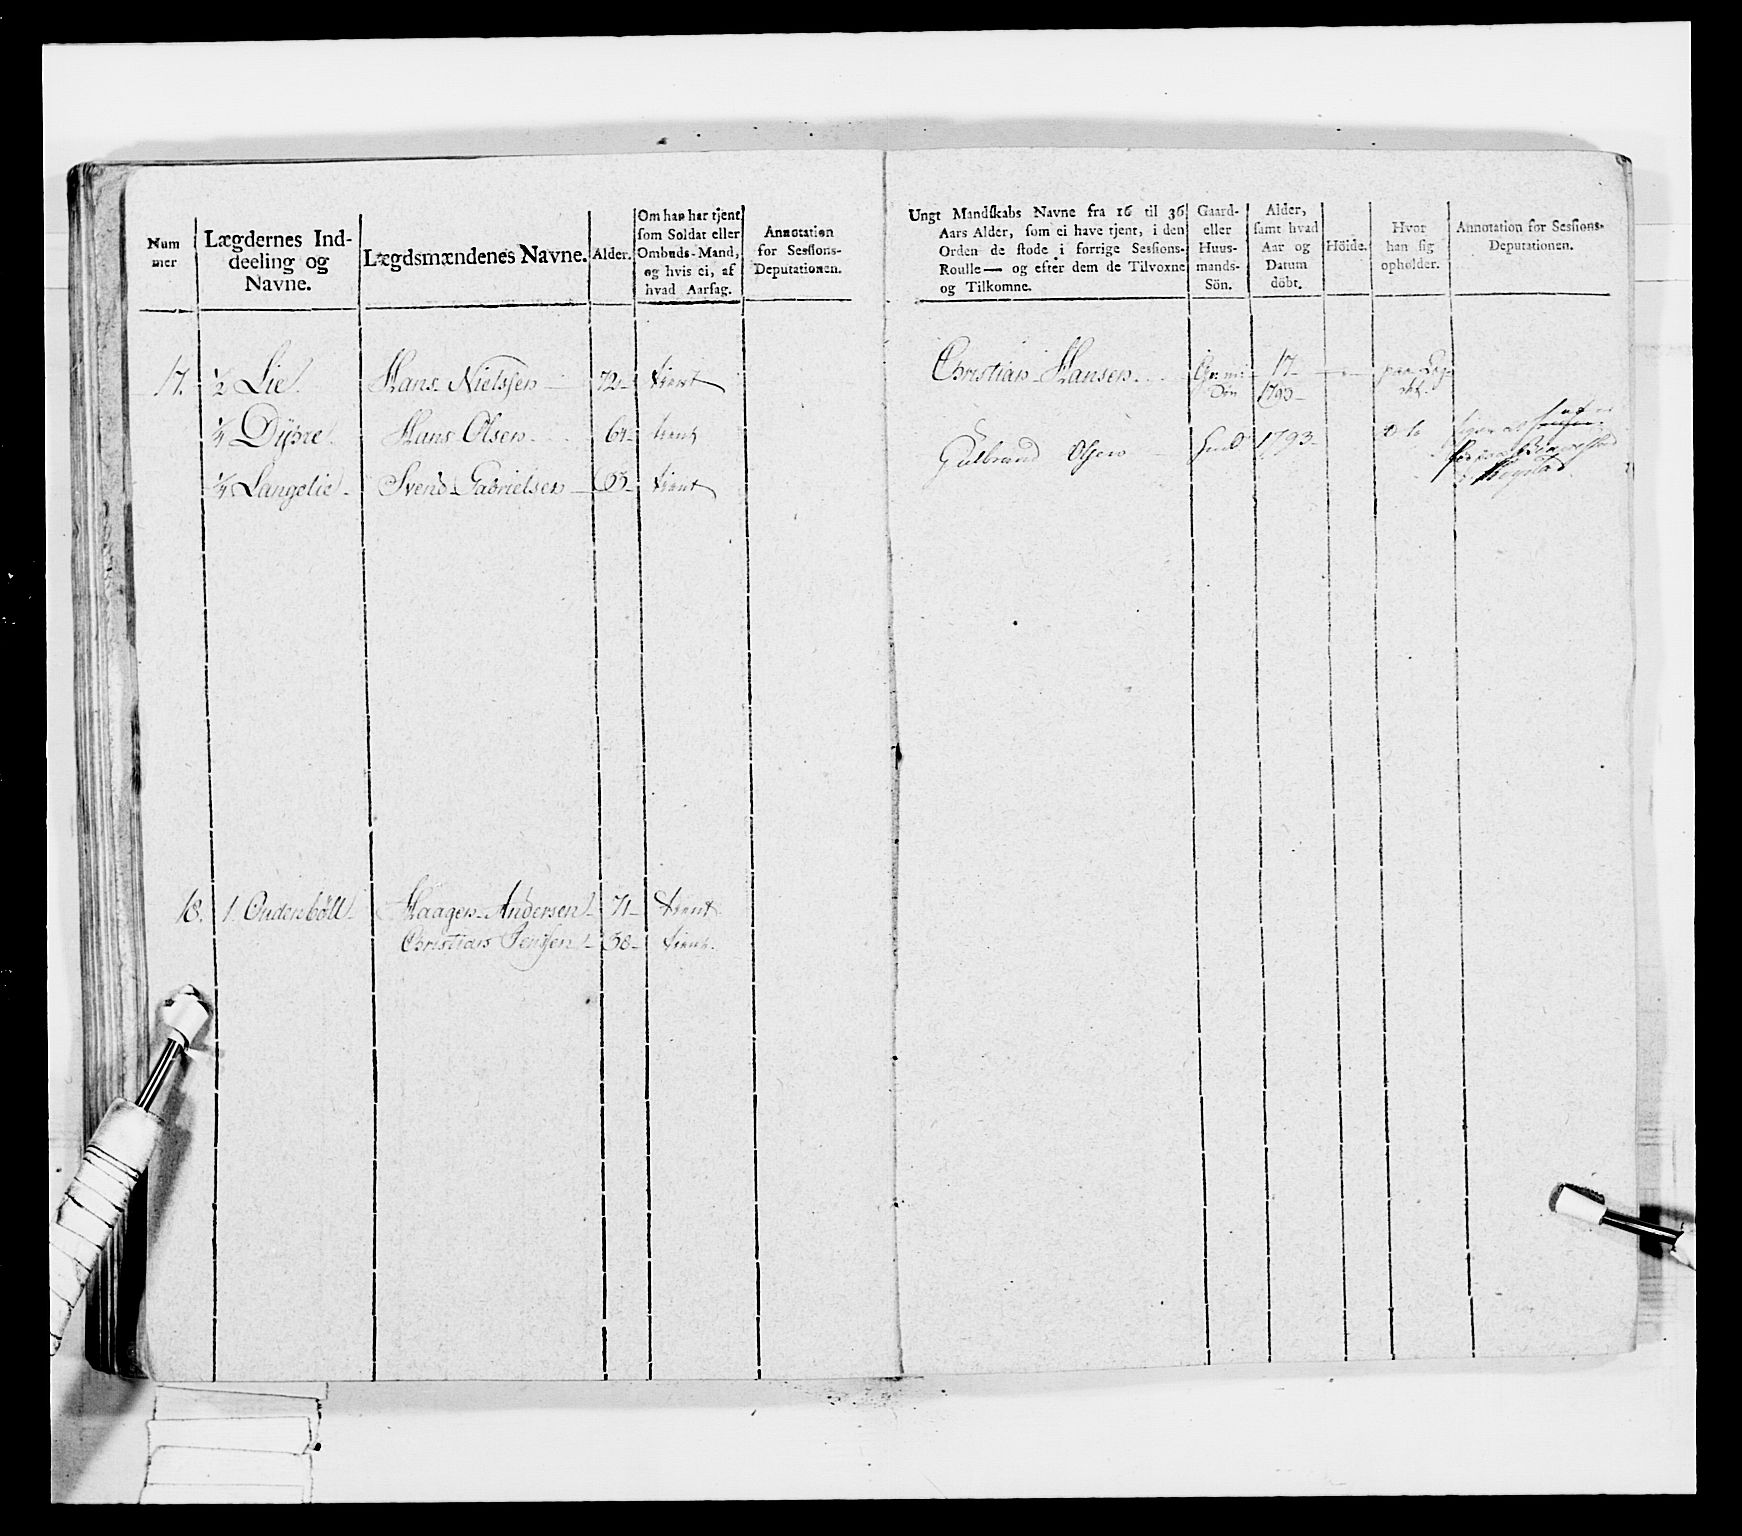 Num
mer
Lægdernes Ind-
deeling og
Navne.
Lægdsmændenes Navne.
Alder.
Om han har tjent
som Soldat eller
Ombuds-Mand,
og hvis ei, af
hvad Aarsag.
Annotation
for Sessions-
Deputationen.
Ungt Mandskabs Navne fra 16 til 36
Aars Alder, som ei have tjent, i den
Orden de stode i forrige Sessions-
Roulle — og efter dem de Tilvoxne
og Tilkomne.
Gaard-
eller
Huus-
mands-
Sön.
Alder,
samt hvad
Aar og
Datum
döbt.
Höide.
Hvor
han sig
opholder.
Annotation for Sessions-
Deputationen.
17. ½ Lie. Hans Nielssen 72 tient
¼ Dÿsre. Hans Olsen. 64 tient
¼ Langelie. Svend Gabrielsen 63 tient
Christian Hansen. 17
Søn 1793
Gulbrand Olsen 1793
18. 1. Oudenböll Haagen Andersen 71 tient
Christian Jenssen 38 tient.